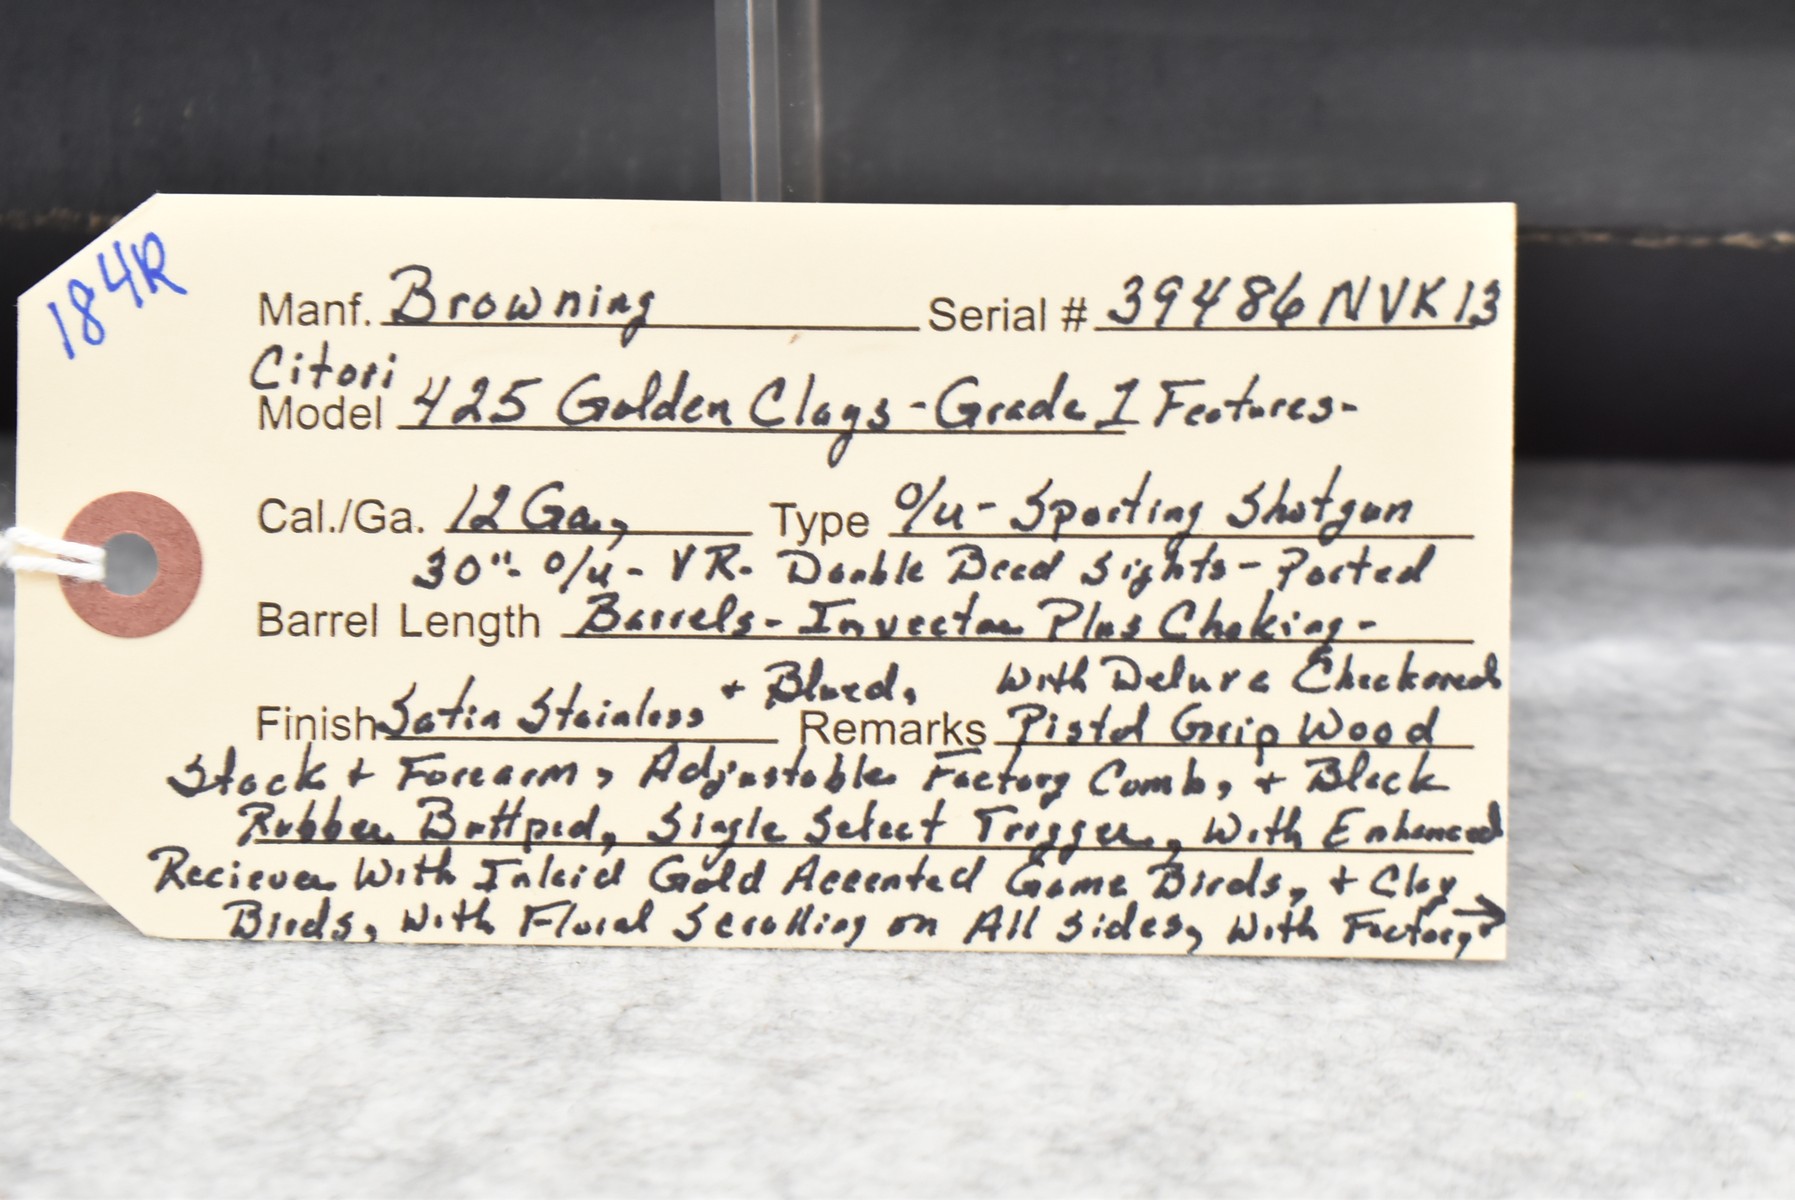 184R
Manf. Browning Serial # 39486NVK13
Citori
Model 425 Golden Clays - Grade I Features-
Cal./Ga. 12 Ga, Type O/U - Sporting Shotgun
30"- O/U - VR- Double Bead Sights - Ported
Barrel Length Barrels - Invector Plus Choking -
+ Blued, With Deluxe Checkered
Finish Satin Stainless Remarks Pistol Grip Wood
Stock + Forearm, Adjustable Factory Comb, + Black
Rubber Buttpad, Single Select Trigger, With Enhanced
Reciever With Inlaid Gold Accented Game Birds, + Clay
Birds, With Floral Scrolling on All Sides, With Factory →